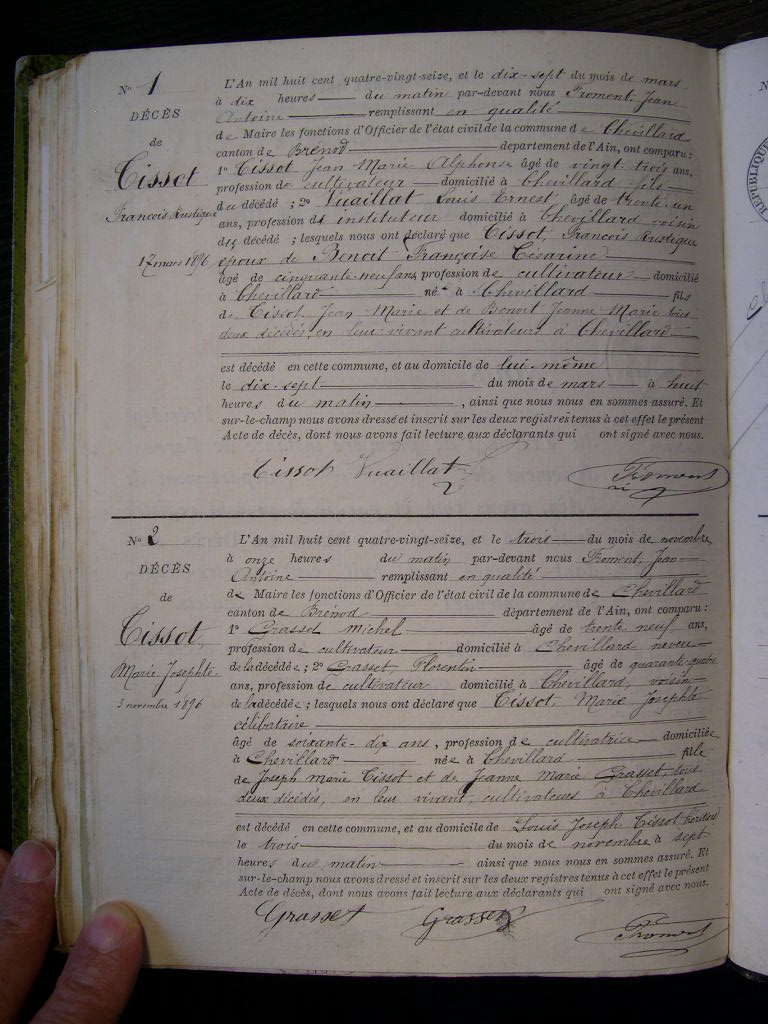 No 1
DÉCÈS
de
Tissot
François Rustique
17 mars 1896
L'An mil huit cent quatre-vingt-seize, et le dix-sept du mois de mars
à dix heures du matin par-devant nous Froment, Jean
Antoine remplissant en qualité
de Maire les fonctions d'Officier de l'état civil de la commune de Chevillard
canton de Brénod département de l'Ain, ont comparu :
1o Tissot Jean Marie Alphonse âgé de vingt-trois ans,
profession de cultivateur domicilié à Chevillard fils
du décédé ; 2o Vuaillat Louis Ernest, âgé de trente-un
ans, profession d' instituteur domicilié à Chevillard voisin
du décédé ; lesquels nous ont déclaré que Tissot, François Rustique
époux de Benoit Françoise Césarine
âgé de cinquante-neuf ans, profession de cultivateur domicilié
à Chevillard né à Chevillard fils
de Tissot Jean Marie et de Benoit Jeanne Marie tous
deux décédés, en leur vivant cultivateurs à Chevillard
est décédé en cette commune, et au domicile de lui-même
le dix-sept du mois de mars à huit
heures du matin, ainsi que nous nous en sommes assuré. Et
sur-le-champ nous avons dressé et inscrit sur les deux registres tenus à cet effet le présent
Acte de décès, dont nous avons fait lecture aux déclarants qui ont signé avec nous.
Tissot Vuaillat Froment
No 2
DÉCÈS
de
Tissot
Marie Josephte
3 novembre 1896
L'An mil huit cent quatre-vingt-seize, et le trois du mois de novembre
à onze heures du matin par-devant nous Froment, Jean
Antoine remplissant en qualité
de Maire les fonctions d'Officier de l'état civil de la commune de Chevillard
canton de Brénod département de l'Ain, ont comparu :
1o Grasset Michel âgé de trente neuf ans,
profession de cultivateur domicilié à Chevillard neveu
de la décédée ; 2o Grasset, Florentin âgé de quarante quatre
ans, profession de cultivateur domicilié à Chevillard, voisin
de la décédée ; lesquels nous ont déclaré que Tissot, Marie Josephte
célibataire
âgé de soixante-dix ans, profession de cultivatrice domiciliée
à Chevillard née à Chevillard fille
de Joseph Marie Tissot et de Jeanne Marie Grasset, tous
deux décédés, en leur vivant, cultivateurs à Chevillard
est décédé en cette commune, et au domicile de Louis Joseph Tissot
le trois du mois de novembre à sept
heures du matin ainsi que nous nous en sommes assuré. Et
sur-le-champ nous avons dressé et inscrit sur les deux registres tenus à cet effet le présent
Acte de décès, dont nous avons fait lecture aux déclarants qui ont signé avec nous.
Grasset Grasset Froment